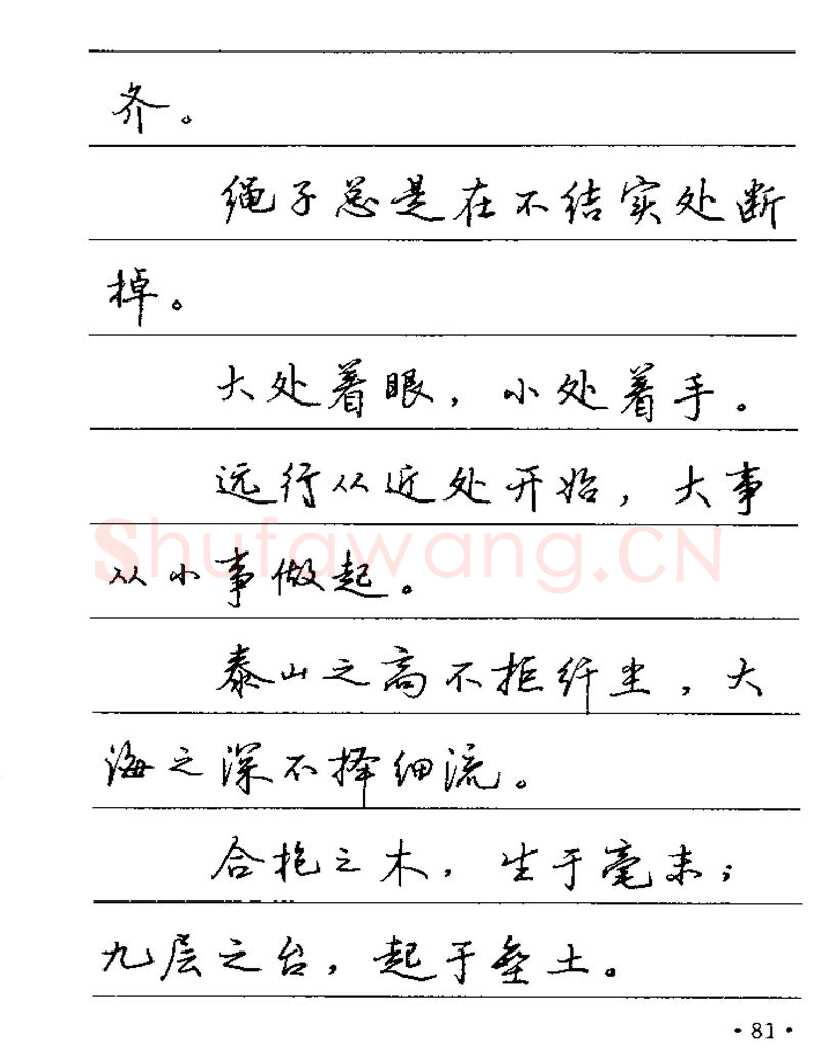 齐。
绳子总是在不结实处断
掉。
大处着眼，小处着手。
远行从近处开始，大事
Shufawang.CN
从小事做起。
泰山之高不拒纤尘，大
海之深不择细流。
合抱之木，生于毫末；
九层之台，起于垒土。
·81·